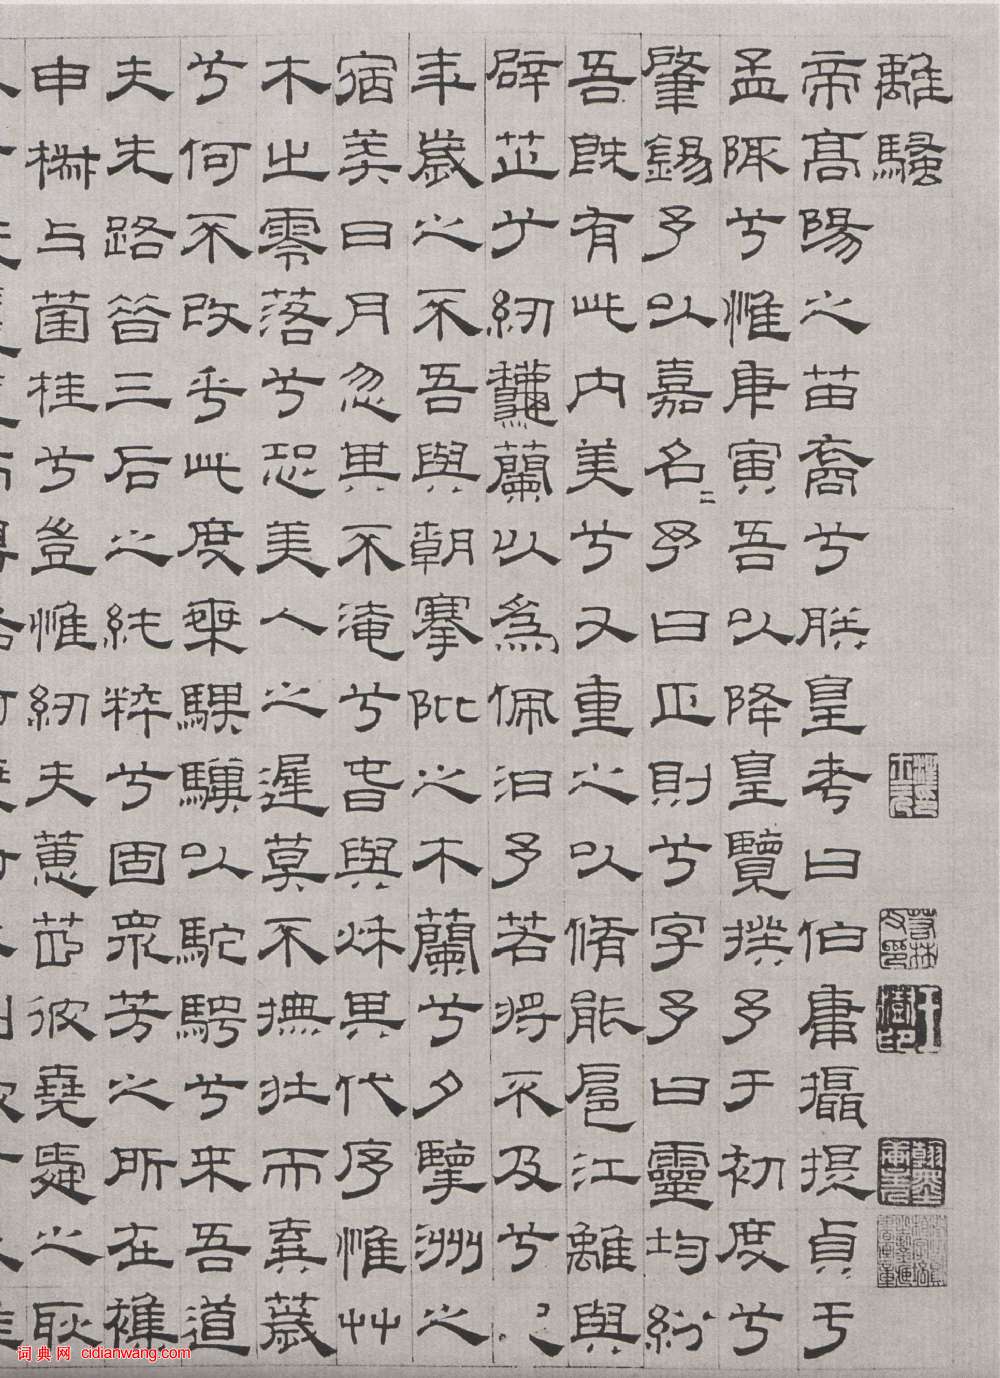 離騷
帝高陽之苗裔兮朕皇考曰伯庸攝提貞于
孟陬兮惟庚寅吾以降皇覽揆予于初度兮
肇錫予以嘉名=予曰正則兮字予曰靈均紛
吾既有此內美兮又重之以脩能扈江離與
辟芷兮紉秋蘭以為佩汩予若將不及兮恐
年歲之不吾與朝搴阰之木蘭兮夕擥洲之
宿莽日月忽其不淹兮春與秋其代序惟艸
木之零落兮恐美人之遲莫不撫壯而棄薉
兮何不改乎此度椉騏驥以駝騁兮來吾道
夫先路昔三后之純粹兮固眾芳之所在襍
申椒與菌桂兮豈惟紉夫蕙茝彼堯舜之耿
词典网 cidianwang.com